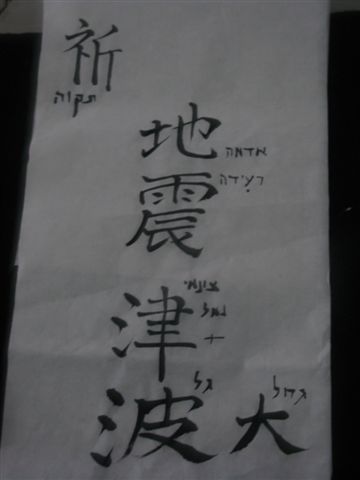 祈
תקוה
地 אדמה
震 רעידה
צונמי
津 נמל
+
波 גל
大 גדול